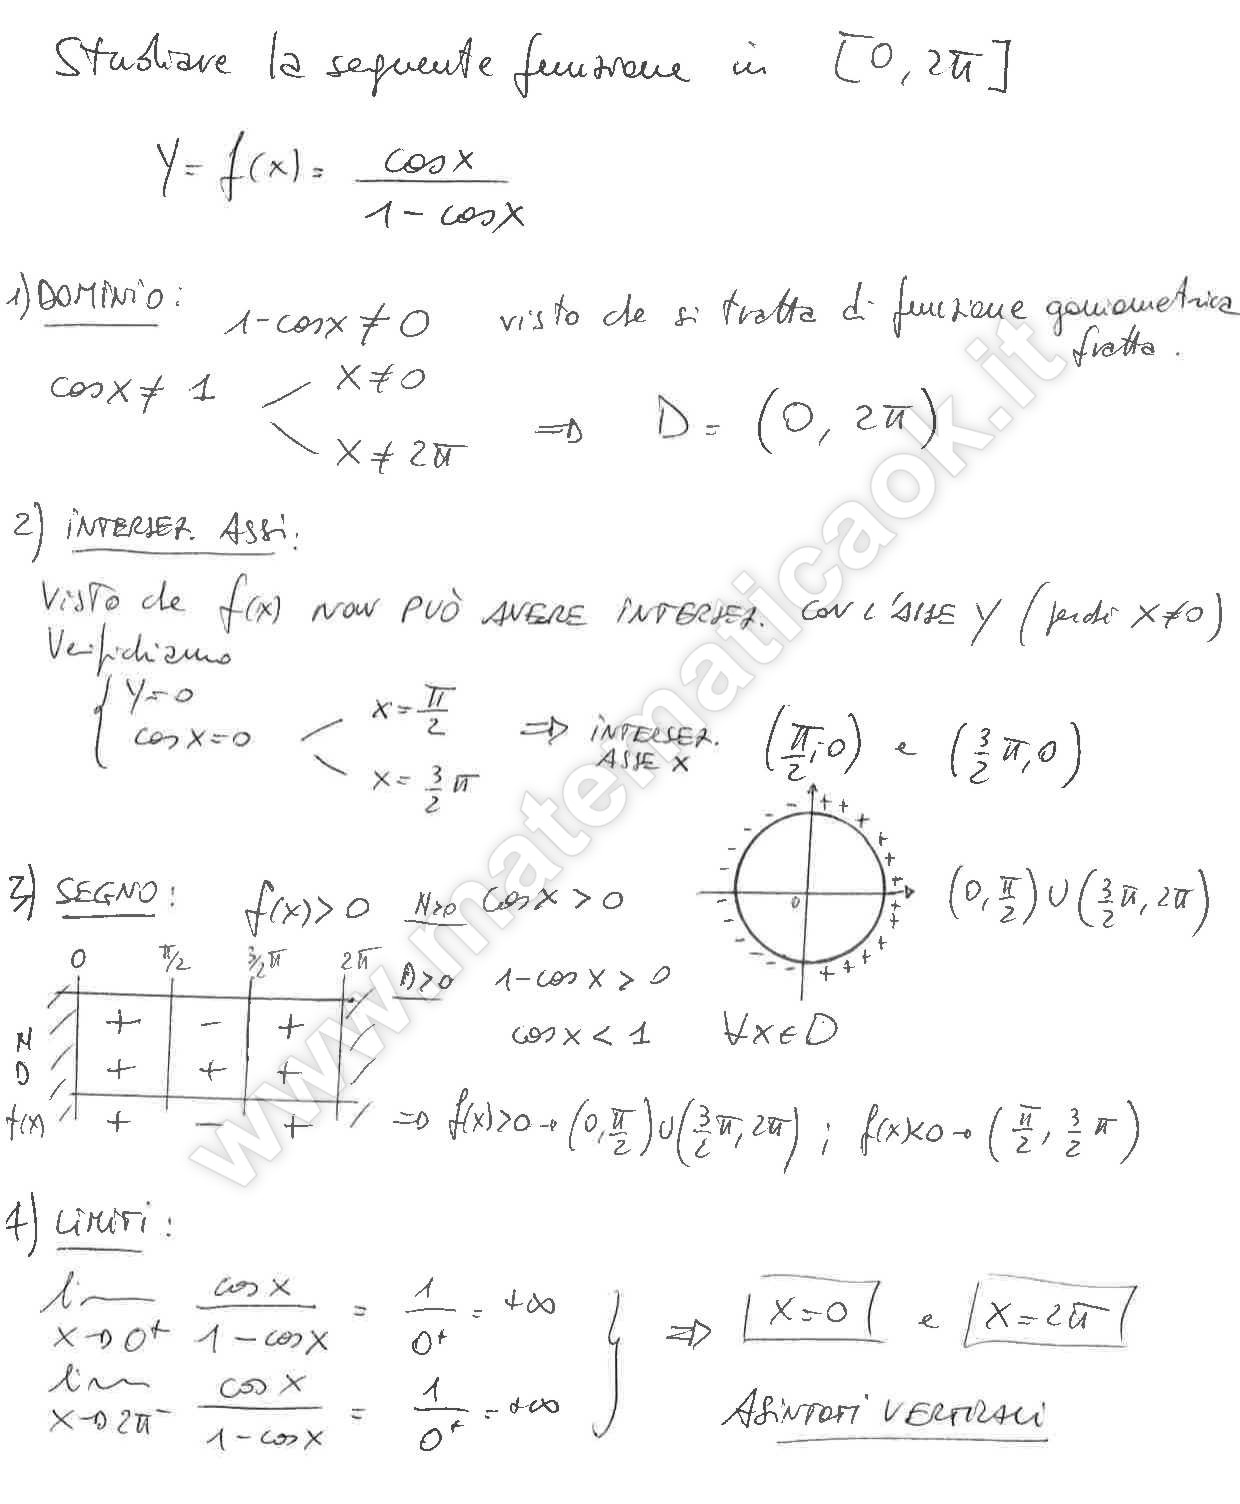 Studiare la seguente funzione in [0, 2π]
y = f(x) = cosx / (1 - cosx)
1) DOMINIO: 1-cosx≠0 visto che si tratta di funzione goniometrica fratta.
cosx≠1 x≠0 x≠2π ⇒ D = (0, 2π)
2) INTERSEZ. ASSI:
Visto che f(x) NON PUÒ AVERE INTERSEZ. CON L'ASSE Y (perché x≠0)
Verifichiamo
{ y=0 cosx=0 x=π/2 x=3/2 π ⇒ INTERSEZ. ASSE X (π/2; 0) e (3/2 π, 0)
0
3) SEGNO: f(x)>0 N>0 cosx>0 (0, π/2) ∪ (3/2 π, 2π)
0 π/2 3/2 π 2π D>0 1-cosx>0
N + - + cosx<1 ∀x∈D
D + + +
f(x) + - + ⇒ f(x)>0 → (0, π/2) ∪ (3/2 π, 2π) ; f(x)<0 → (π/2, 3/2 π)
4) LIMITI:
lim x→0⁺ cosx / (1-cosx) = 1/0⁺ = +∞
lim x→2π⁻ cosx / (1-cosx) = 1/0⁺ = +∞
⇒ x=0 e x=2π
ASINTOTI VERTICALI
www.matematicaok.it